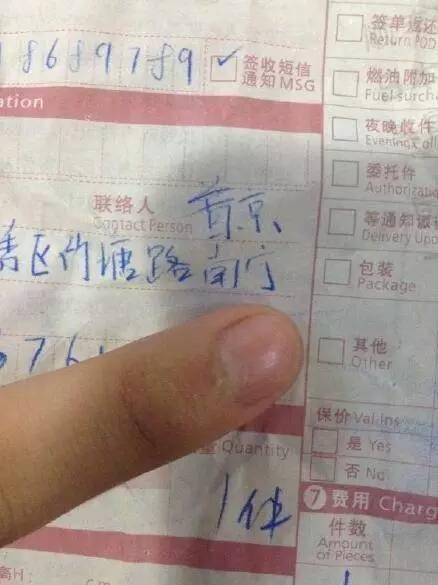 签单返还
Return POD
18689789 ✓ 签收短信
通知 MSG
燃油附加
Fuel surch
ation
夜晚收件
Evenings, of
委托件
Authorizati
联络人
Contact Person
等通知
Delivery Upo
区竹塘路南宁
包装
Package
其他
Other
保价 Val.Ins
是 Yes
Quantity
否 No
1件
7 费用 Charg
件数
Amount
of Pieces
高H: cm